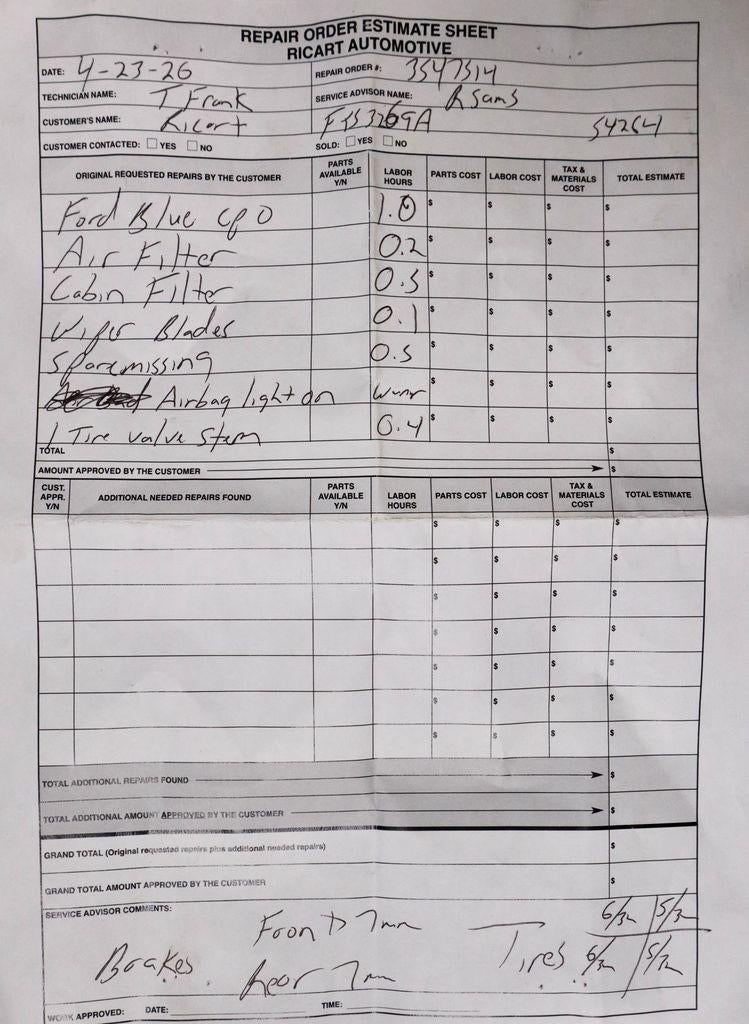 REPAIR ORDER ESTIMATE SHEET
RICART AUTOMOTIVE
DATE: 4-23-26 REPAIR ORDER #: 3547514
TECHNICIAN NAME: T Frank SERVICE ADVISOR NAME: R Sams
CUSTOMER'S NAME: Ricart 54264
CUSTOMER CONTACTED: YES NO SOLD: YES NO
ORIGINAL REQUESTED REPAIRS BY THE CUSTOMER PARTS AVAILABLE Y/N LABOR HOURS PARTS COST LABOR COST TAX & MATERIALS COST TOTAL ESTIMATE
Ford Blue CPO 1.0 $ $ $ $
Air Filter 0.2 $ $ $ $
Cabin Filter 0.3 $ $ $ $
Wiper Blades 0.1 $ $ $ $
Spare missing 0.5 $ $ $ $
Airbag light on $ $ $ $
1 Tire valve stem 0.4 $ $ $ $
TOTAL $
AMOUNT APPROVED BY THE CUSTOMER $
CUST. APPR. Y/N ADDITIONAL NEEDED REPAIRS FOUND PARTS AVAILABLE Y/N LABOR HOURS PARTS COST LABOR COST TAX & MATERIALS COST TOTAL ESTIMATE
$ $ $ $
$ $ $ $
$ $ $ $
$ $ $ $
$ $ $ $
$ $ $ $
$ $ $ $
TOTAL ADDITIONAL REPAIRS FOUND $
TOTAL ADDITIONAL AMOUNT APPROVED BY THE CUSTOMER $
GRAND TOTAL (Original requested repairs plus additional needed repairs) $
GRAND TOTAL AMOUNT APPROVED BY THE CUSTOMER $
SERVICE ADVISOR COMMENTS:
Brakes Front 7mm Tires 6/32 5/32
Rear 7mm 6/32 5/32
WORK APPROVED: DATE: TIME: